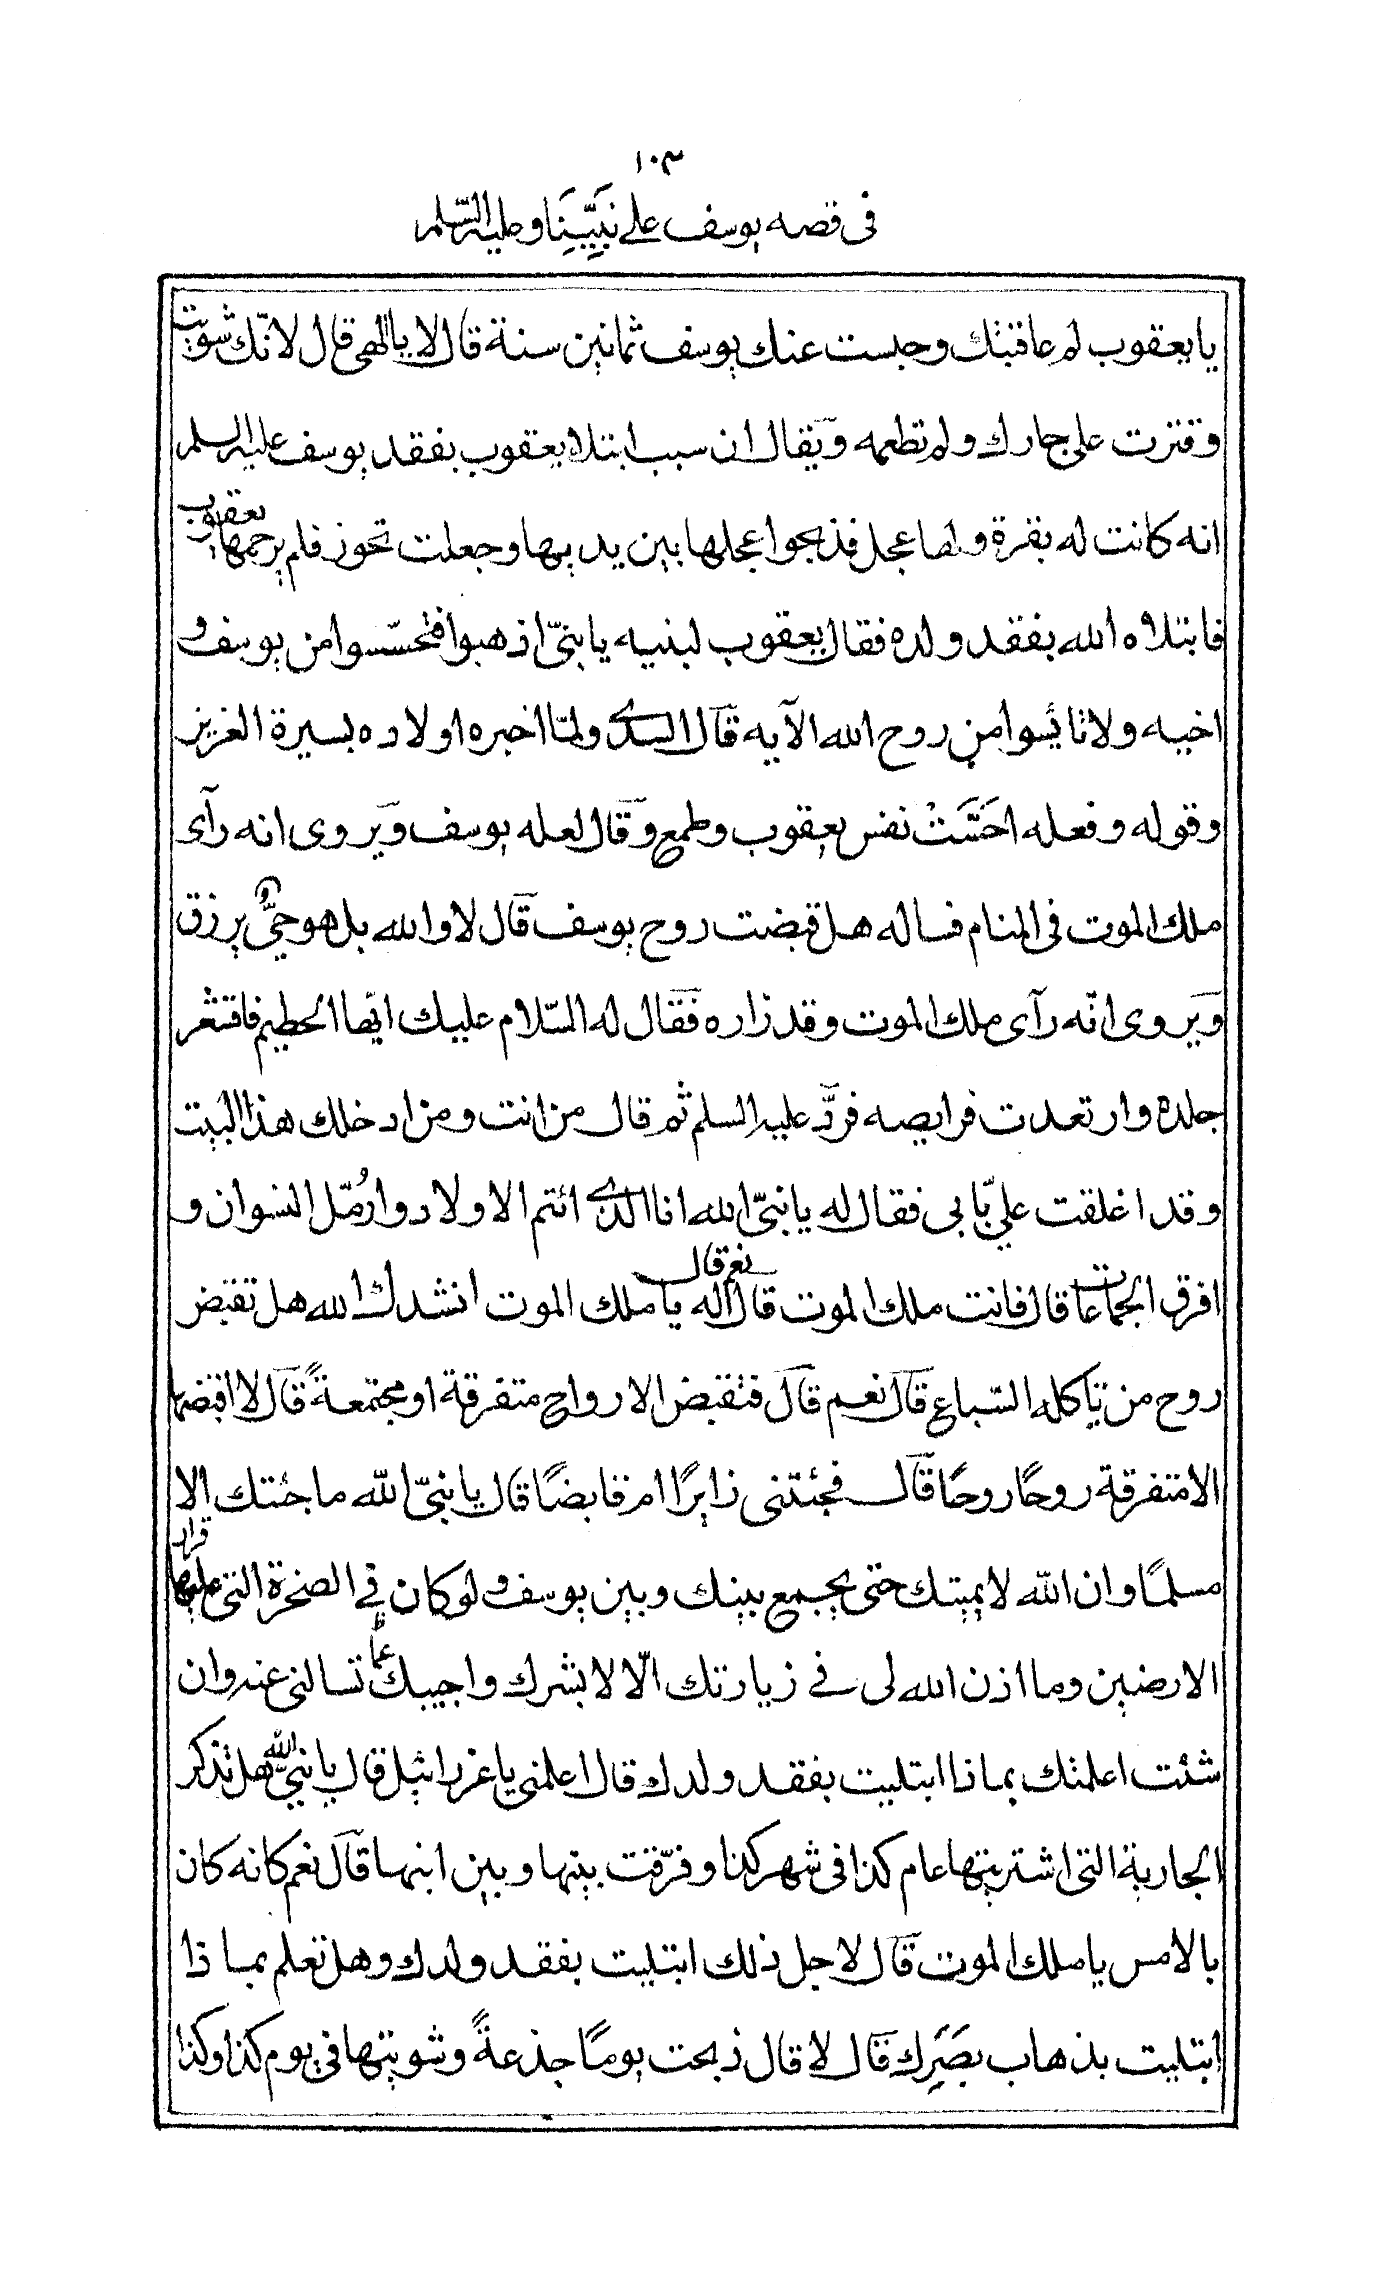 ١٠٣
فى قصه يوسف على نَبيِّنَا وعليه السّلم
يا يعقوب لم عاقبتك وحبست عنك يوسف ثمانين سنة قال لا يا الهى قال لانّك شويت
وقترت على جارك ولم تطعمه ويقال ان سبب ابتلاء يعقوب بفقد يوسف عليه السلم
انه كانت له بقرة ولها عجل فذبحوا عجلها بين يديها وجعلت تخوز فلم يرحمها يعقوب
فابتلاه الله بفقد ولده فقال يعقوب لبنيه يا بنىّ اذهبوا فتحسّسوا من يوسف و
اخيه ولا تايئسوا من روح الله الآيه قال السدى ولمّا اخبره اولاده بسيرة العزيز
وقوله وفعله احَسَّتْ نفس يعقوب وطمع وقال لعله يوسف ويروى انه رآى
ملك الموت فى المنام فساله هل قبضت روح يوسف قال لا والله بل هو حىٌّ يرزق
ويروى انّه رآى ملك الموت وقد زاره فقال له السّلام عليك ايّها الحطيم فاقشعر
جلده وارتعدت فرايصه فردّ عليه السلم ثم قال من انت ومن ادخلك هذا البيت
وقد اغلقت علىّ بابى فقال له يا نبىّ الله انا الذى ائتم الاولاد وارُمّل النسوان و
افرق الجماعات قال فانت ملك الموت قال نعم قال له يا ملك الموت انشدك الله هل تقبض
روح من تاكله السّباع قال نعم قال فتقبض الارواح متفرقة او مجتمعةً قال لا اقبضها
الا متفرقة روحًا روحًا قال فجئتنى زايرًا ام قابضًا قال يا نبىّ الله ما جئتك الا
مسلمًا وان الله لا يميتك حتى يجمع بينك وبين يوسف ولو كان فى الصخرة التى عليها قرار
الارضين وما اذن الله لى فى زيارتك الّا لابشرك واجيبك عمّا تسالنى عنه وان
شئت اعلمتك بماذا ابتليت بفقد ولدك قال اعلمنى يا عزرائيل قال يا نبىّ الله هل تذكر
الجارية التى اشتريتها عام كذا فى شهر كذا وفرّقت بينها وبين ابنها قال نعم كانه كان
بالامس يا ملك الموت قال لاجل ذلك ابتليت بفقد ولدك وهل تعلم بماذا
ابتليت بذهاب بصَرِك قال لا قال ذبحت يومًا جذعةً وشويتها فى يوم كذا وكذا